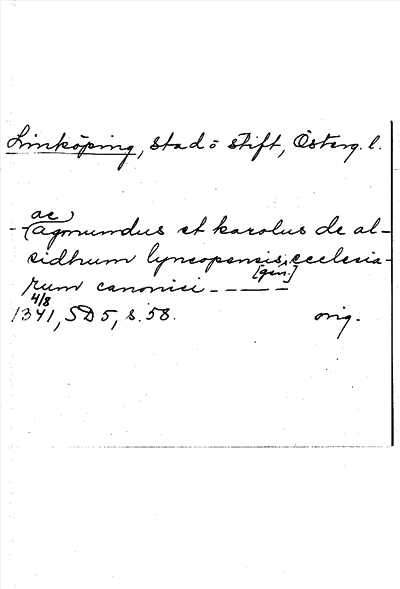 Linköping, stad o stift, Österg. l.
ac
- (agmundus et karolus de al-
sidhum lyncopensis, ecclesia-
[gen.]
rum canonici - - - - -
4/8
1341, SD 5, s. 58. orig.